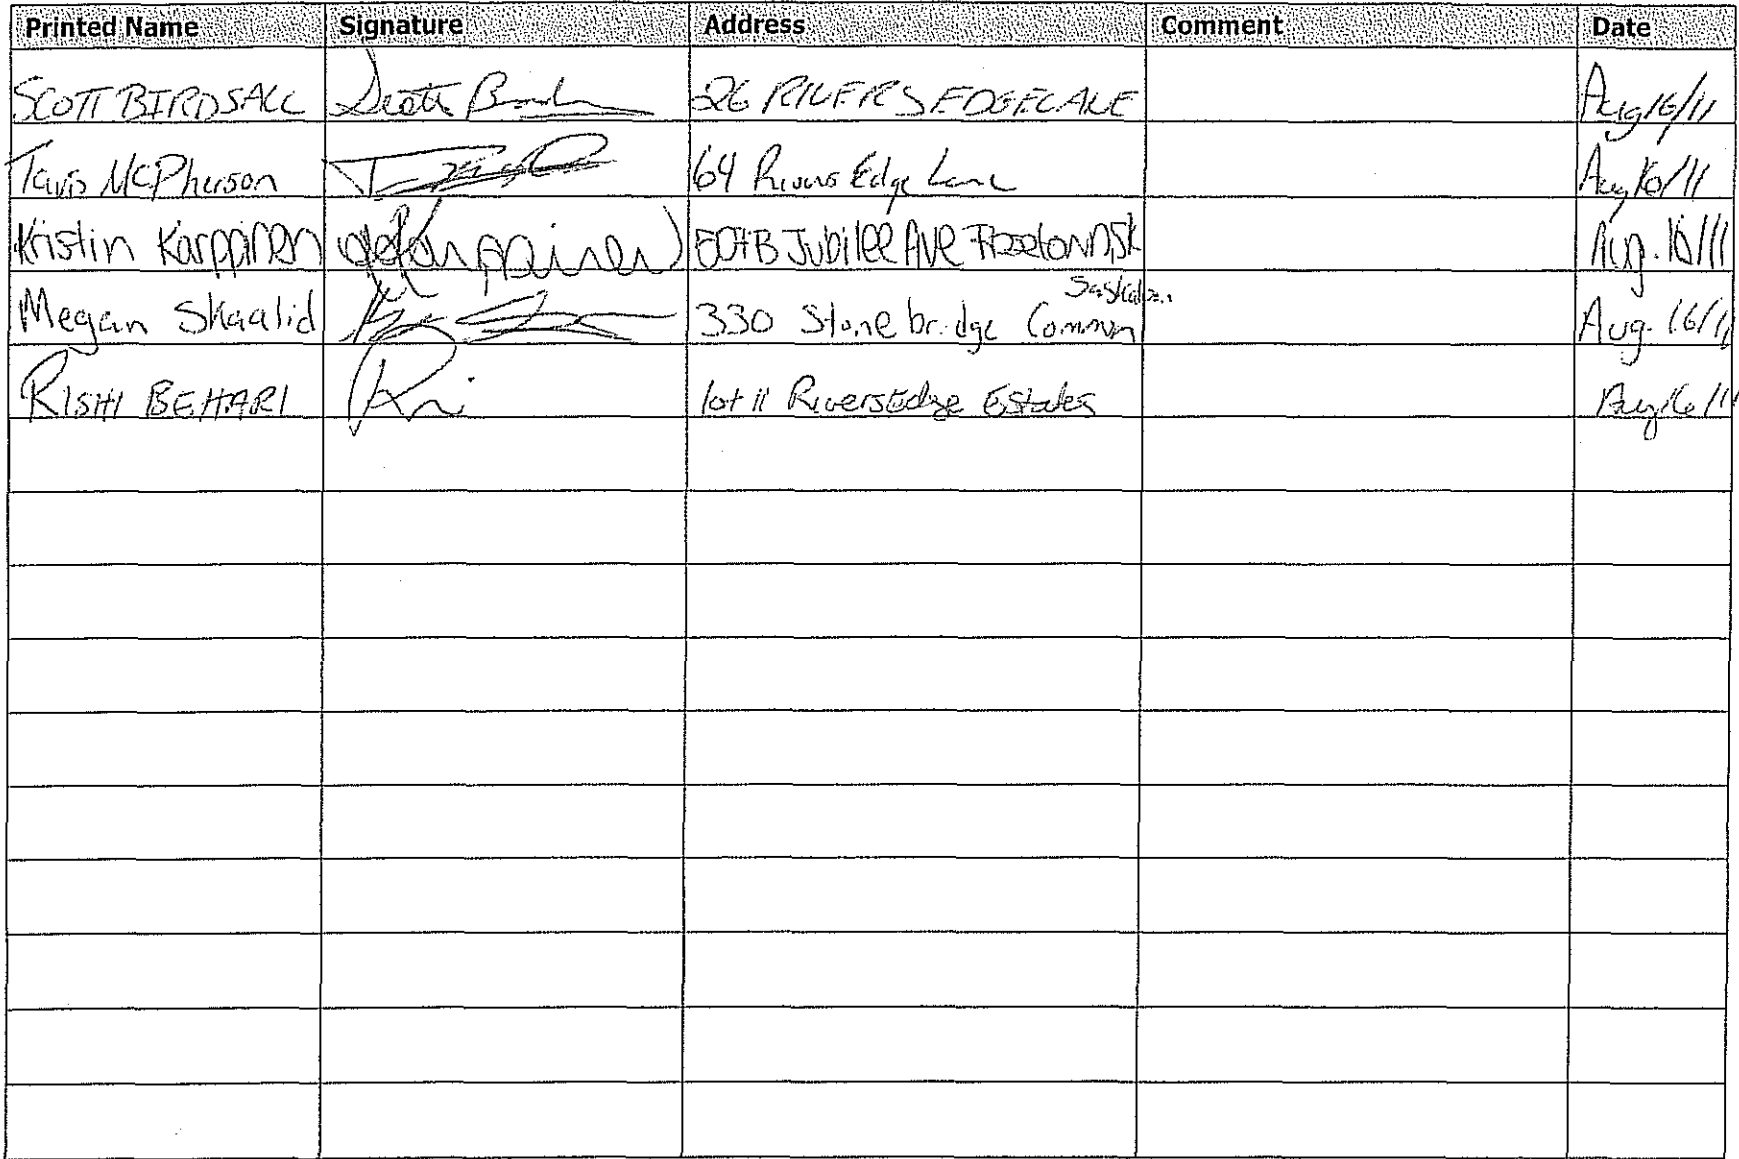 Printed Name Signature Address Comment Date
SCOTT BIRDSALL Scott 26 RIVERS EDGE LANE Aug 16/11
McPherson 64 Rivers Edge Lane Aug 16/11
Kristin Karppinen Karppinen Jubilee Ave SK Aug. 16/11
Megan Skaalid 330 Stonebridge Common Saskatoon Aug. 16/11
RISHI BEHARI lot 11 Rivers Edge Estates Aug 16/11